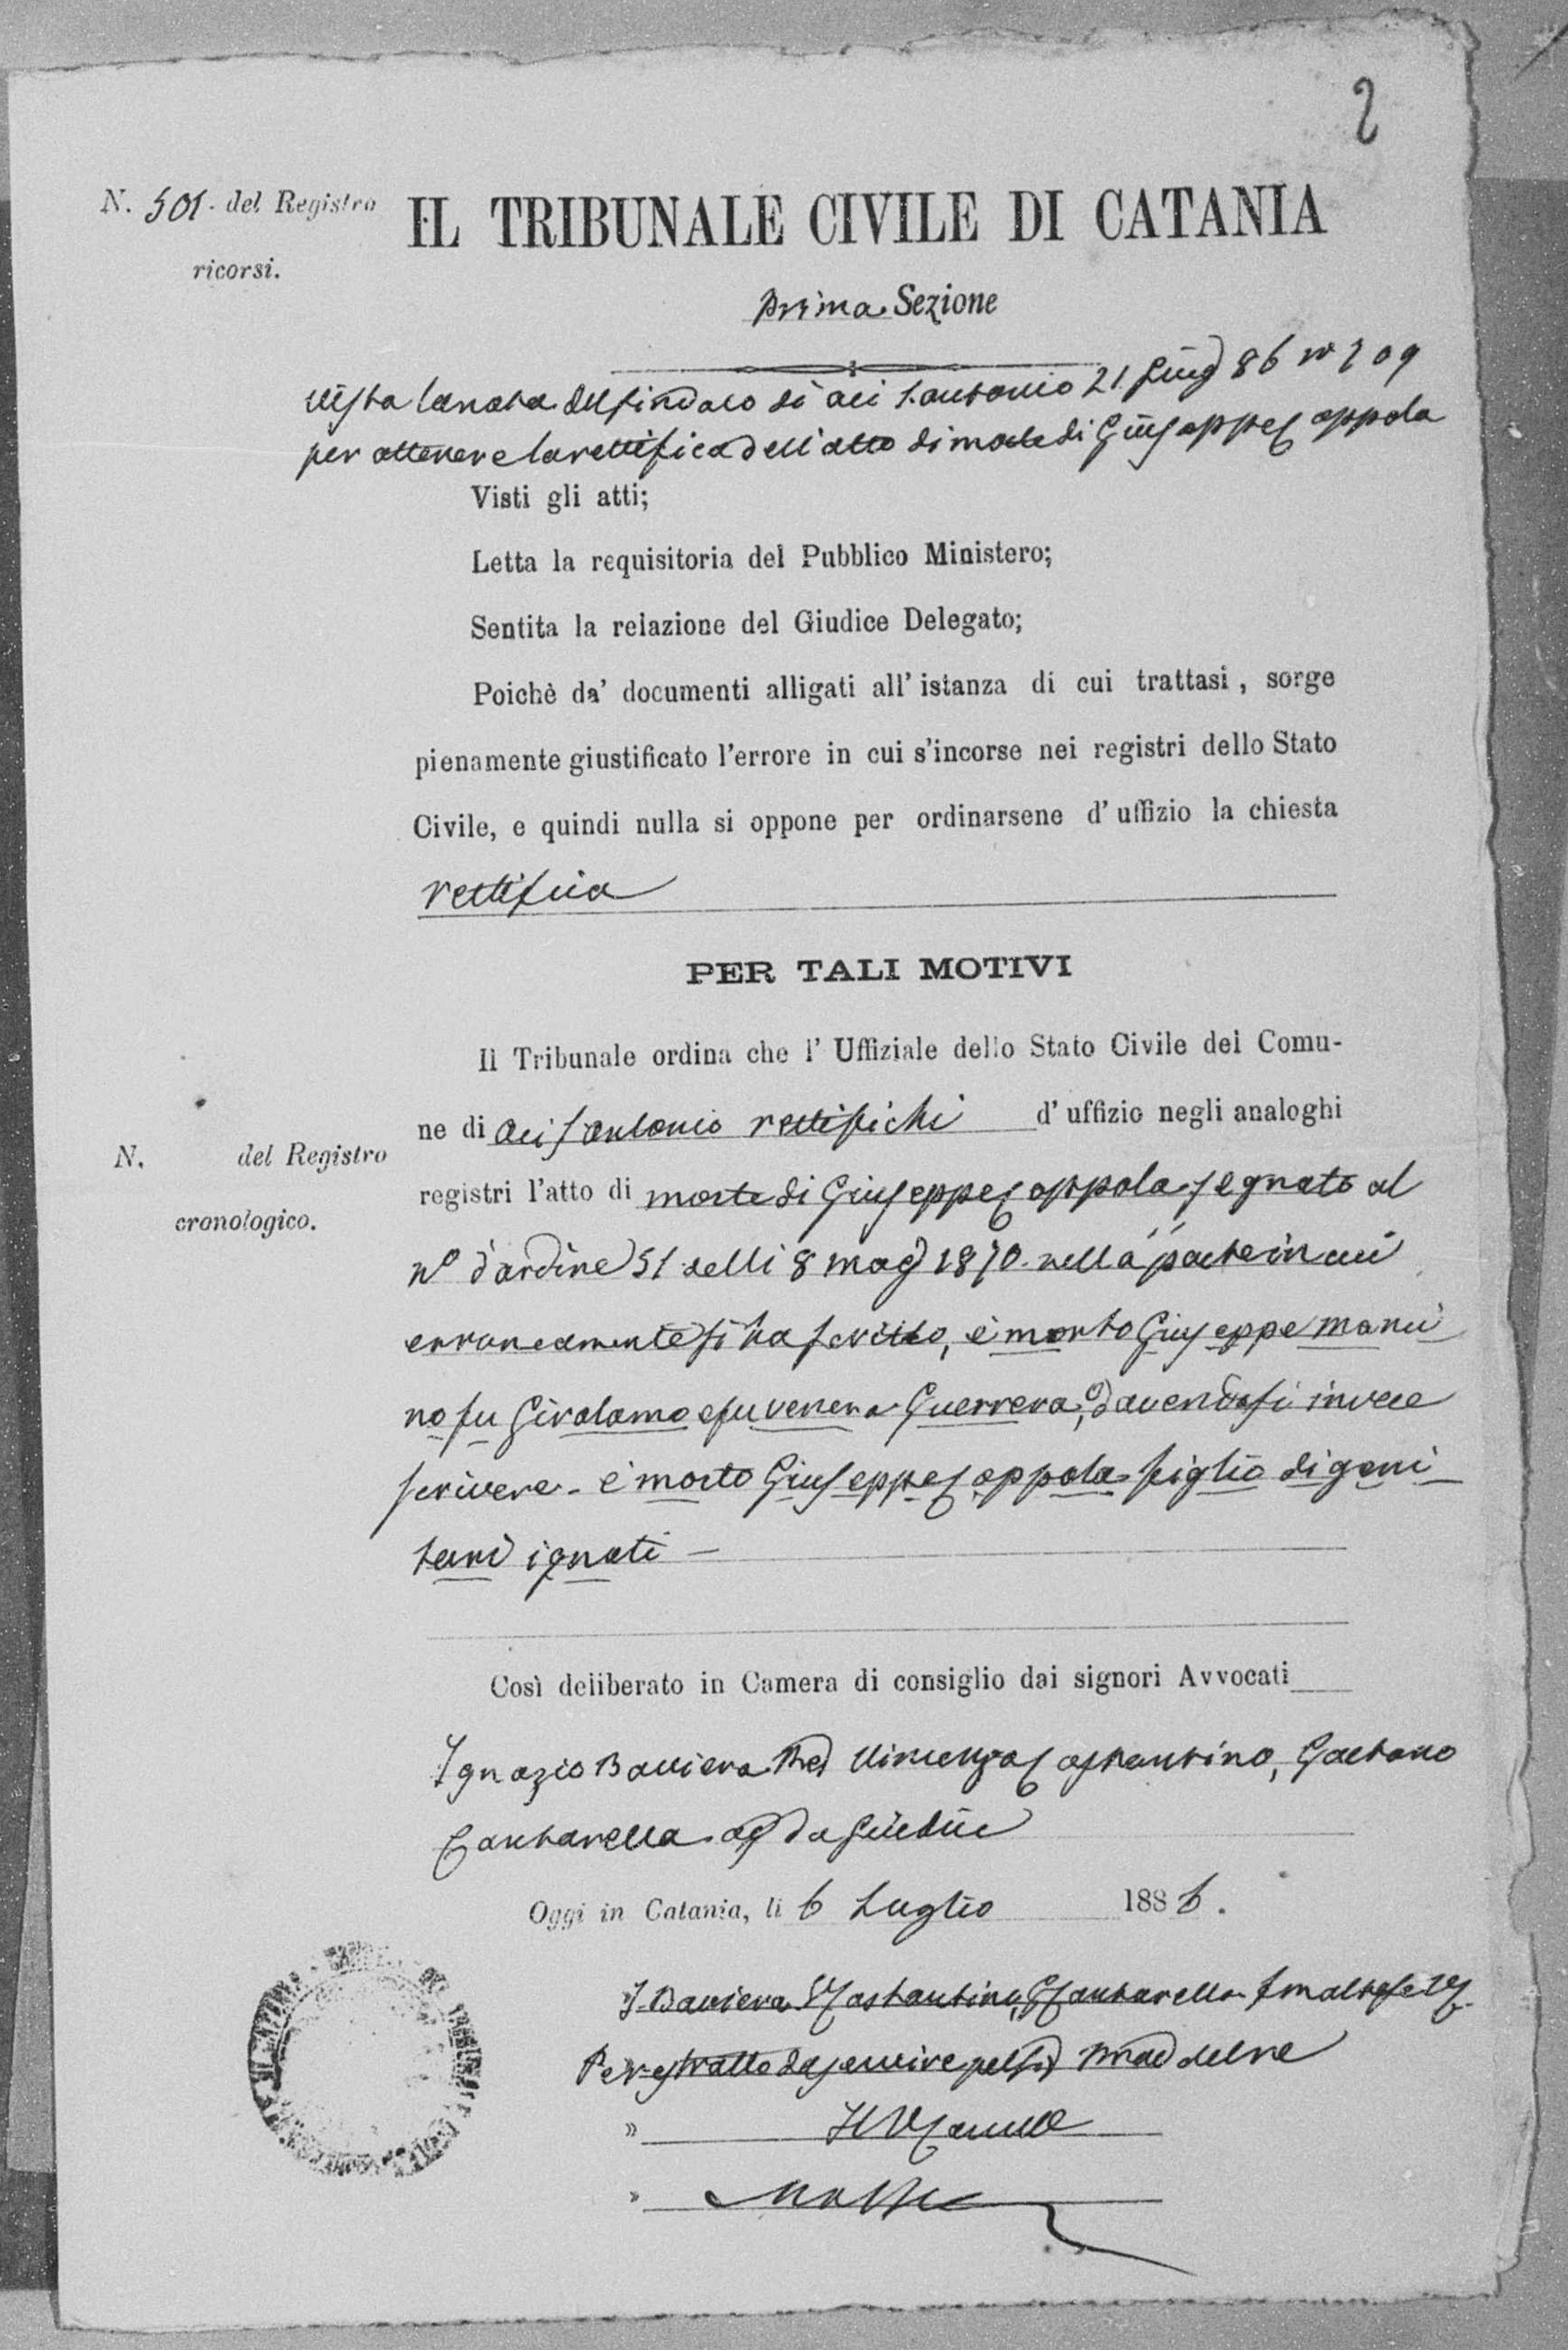 2
N. 501. del Registro
ricorsi.
IL TRIBUNALE CIVILE DI CATANIA
Prima Sezione
Vista la nota del sindaco di Aci S. Antonio 21 Giug 86 n° 709
per ottenere la rettifica dell'atto di morte di Giuseppe Coppola
Visti gli atti;
Letta la requisitoria del Pubblico Ministero;
Sentita la relazione del Giudice Delegato;
Poichè da' documenti alligati all' istanza di cui trattasi, sorge
pienamente giustificato l'errore in cui s'incorse nei registri dello Stato
Civile, e quindi nulla si oppone per ordinarsene d' uffizio la chiesta
rettifica
PER TALI MOTIVI
Il Tribunale ordina che l' Uffiziale dello Stato Civile del Comu-
ne di Aci S Antonio rettifichi d' uffizio negli analoghi
N. del Registro
cronologico.
registri l'atto di morte di Giuseppe Coppola segnato al
n° d'ordine 51 delli 8 mag 1870. nella parte in cui
erroneamente si ha scritto, è morto Giuseppe Manci
no fu Girolamo e fu Venera Guerrera, dovendosi invece
scrivere - è morto Giuseppe Coppola figlio di geni
tori ignoti -
Così deliberato in Camera di consiglio dai signori Avvocati
Ignazio Baviera Pres Vincenzo Costantino, Gaetano
Cantarella agg da Giudice
Oggi in Catania, li 6 Luglio 1886.
I. Baviera V Costantino, G Cantarella S Maltese VC.
Per estratto da servire pel Sig Proc del Re
» Il V Canc
»